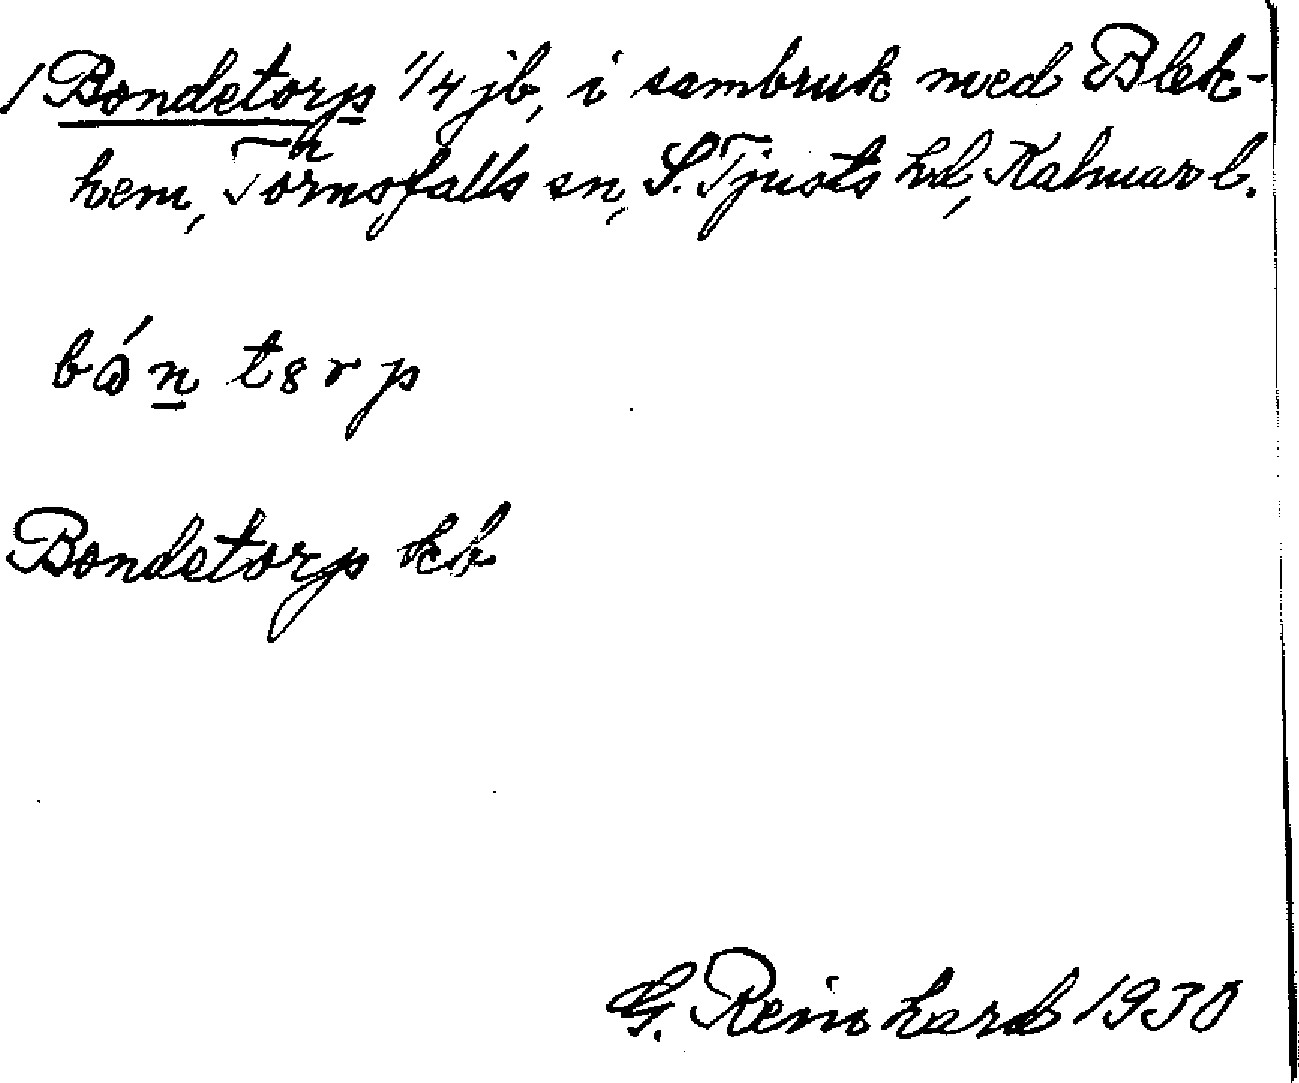 /Bondetorp 1/4 jb, i sambruk med Blek-
hem, Törnsfalls sn, S. Tjusts hd, Kalmar l.
bón tsrp
Bondetorp kb
G. Reinhard 1930